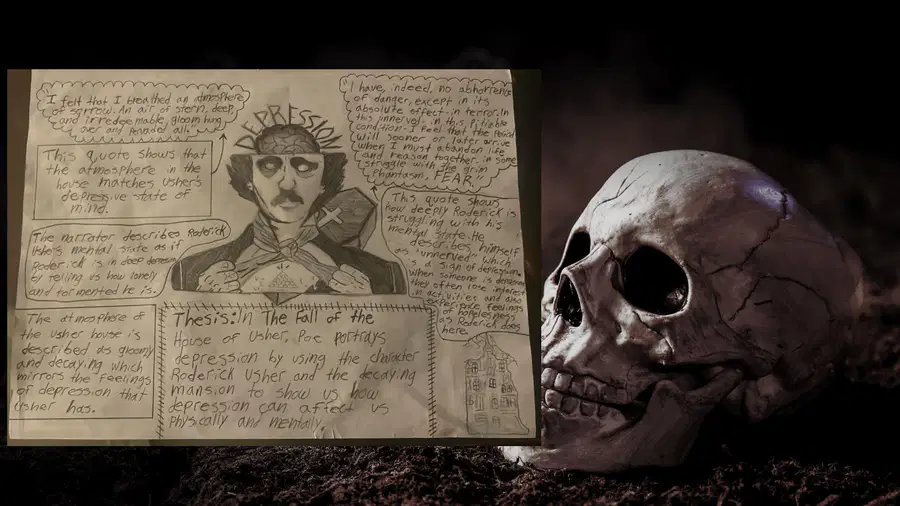 I felt that I breathed an atmosphere
of sorrow. An air of stern, deep,
and irredeemable, gloom hung
over and pervaded all."
This quote shows that
the atmosphere in the
house matches Usher's
depressive state of
mind.
The narrator describes Roderick
Usher's mental state as if
Roderick is in deep depression
by telling us how lonely
and tormented he is.
The atmosphere of
the usher house is
described as gloomy
and decaying which
mirrors the feelings
of depression that
Usher has.
DEPRESSION
"I have, indeed, no abhorrence
of danger, except in its
absolute effect-in terror. In
this unnerved- in this pitiable
condition-I feel that the period
will sooner or later arrive
when I must abandon life
and reason together, in some
struggle with the grim
Phantasm, FEAR."
This quote shows
how deeply Roderick is
struggling with his
mental state. He
describes himself
as "unnerved" which
is a sign of
When someone is
they often lose interest
in activities and also
experience feelings
of hopelessness
as Roderick does
here.
Thesis: In The Fall of the
House of Usher, Poe portrays
depression by using the character
Roderick Usher and the decaying
mansion to show us how
depression can affect us
physically and mentally.